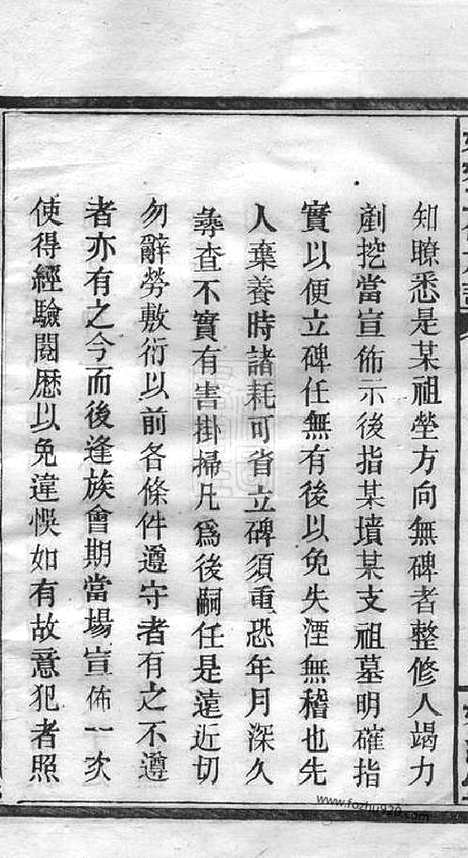 知瞭悉是某祖塋方向無碑者整修人竭力
剷挖當宣佈示後指某墳某支祖墓明確指
實以便立碑任無有後以免失湮無稽也先
人棄養時諸耗可省立碑須重恐年月深久
彝查不實有害掛掃凡爲後嗣任是遠近切
勿辭勞敷衍以前各條件遵守者有之不遵
者亦有之今而後逢族會期當場宣佈一次
使得經驗閱歷以免違悞如有故意犯者照
www.fozhu920.com